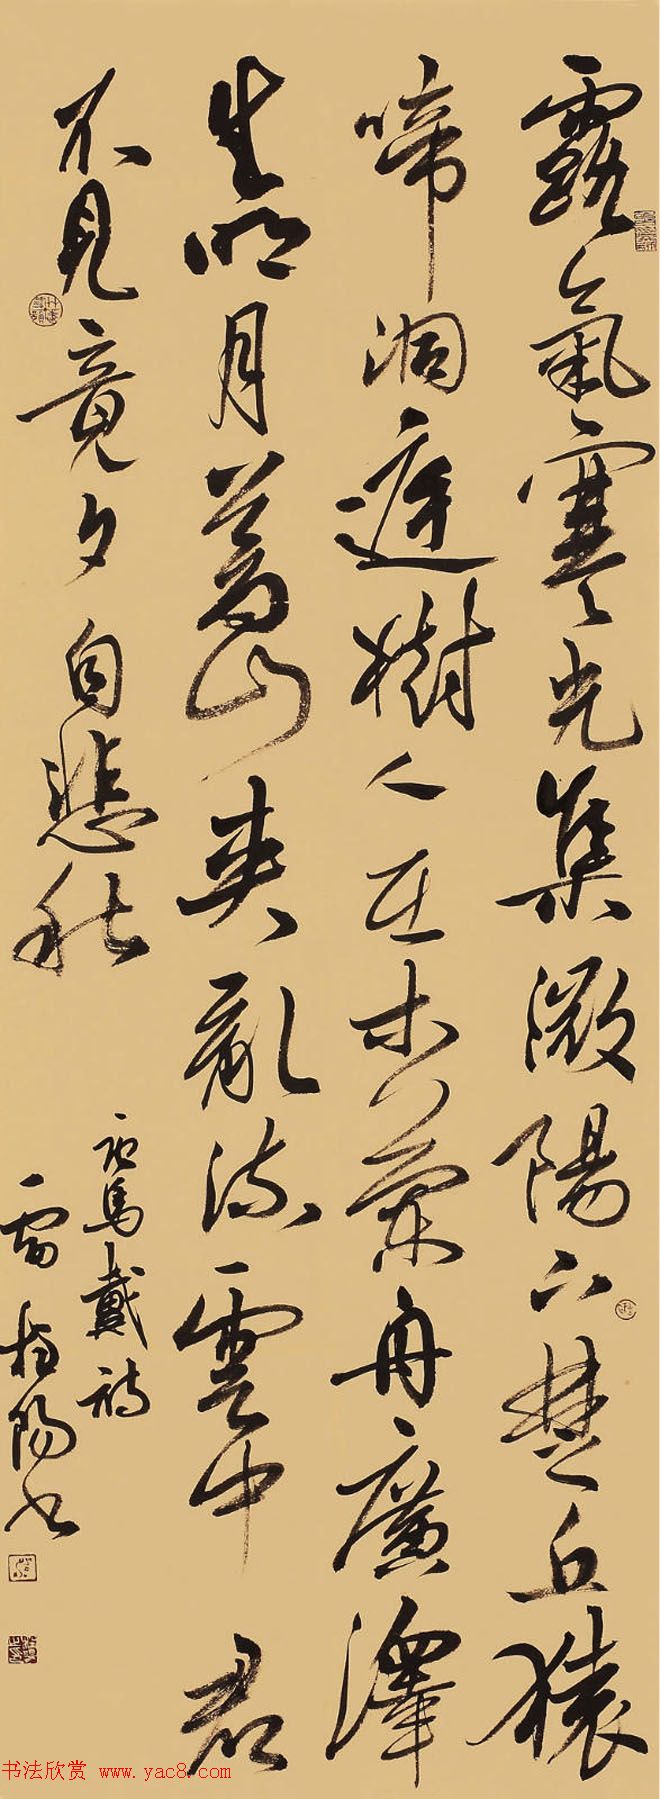 露氣寒光集微陽下楚丘猿
啼洞庭樹人在木蘭舟廣澤
生明月蒼山夾亂流雲中君
不見竟夕自悲秋
唐馬戴詩
雷陽書
书法欣赏 www.yac8.com